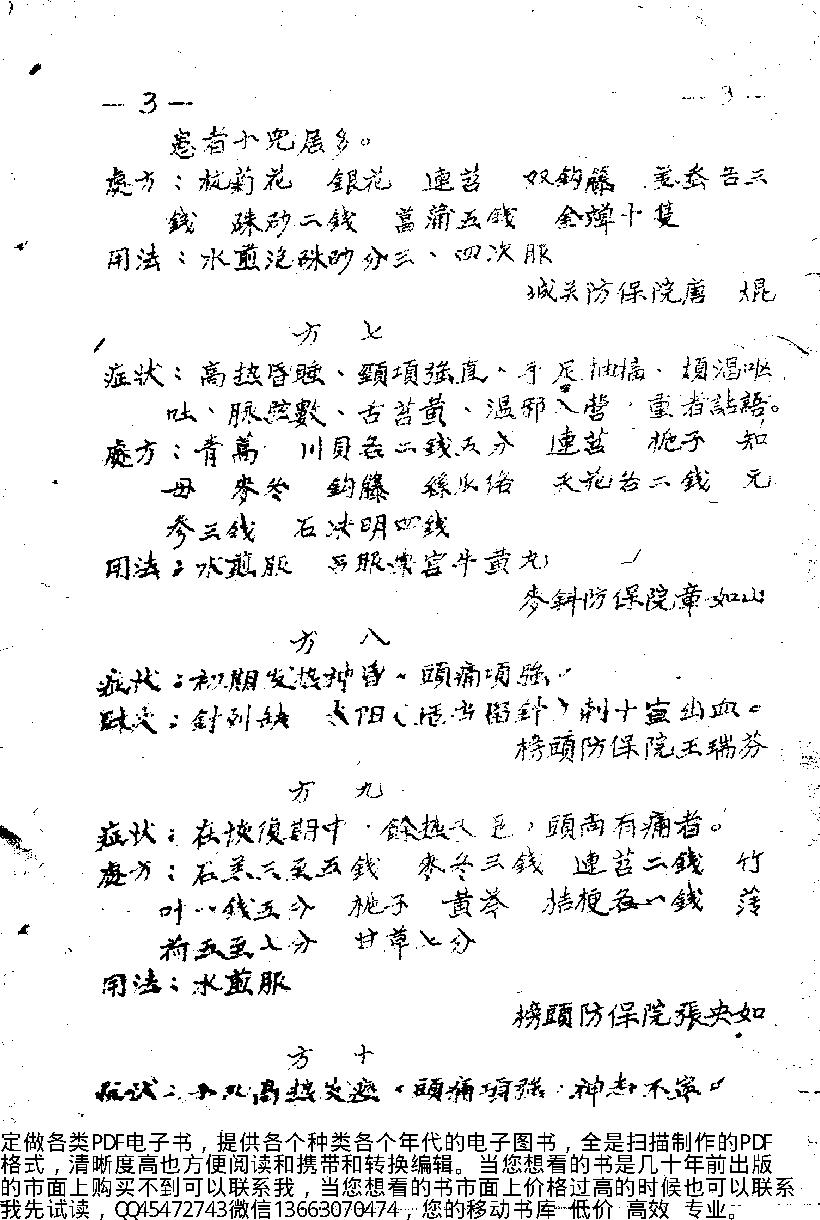 — 3 —
患者小兒居多。
處方：杭菊花 銀花 連苕 双鈎藤 姜蚕各三
錢 硃砂二錢 菖蒲五錢 金蟬十隻
用法：水煎泡硃砂分三、四次服
城关防保院唐 焜
方 七
症状：高热昏睡、頸項強直、手足抽搐、煩渴呕
吐、脉弦數、舌苔黄、温邪入營，重者詀語。
處方：青蒿 川貝各二錢五分 連苕 桅子 知
母 麥冬 鈎藤 絲瓜络 天花各二錢 元
参三錢 石决明四錢
用法：水煎服 另服 宫牛黄丸
麥斜防保院章如山
方 八
症状：初期发热神昏、頭痛項強。
針刺 太阳 刺十宣出血。
榜頭防保院王瑞芬
方 九
症状：在恢復期中，餘热 ，頭尚有痛者。
處方：石羔三至五錢 麥冬三錢 連苕二錢 竹
叶一錢五分 桅子 黄芩 桔梗各一錢 薄
荷五至七分 甘草七分
用法：水煎服
榜頭防保院張央如
方 十
症状：小儿高热 頭痛項強 神志不寧。
定做各类PDF电子书，提供各个种类各个年代的电子图书，全是扫描制作的PDF
格式，清晰度高也方便阅读和携带和转换编辑。当您想看的书是几十年前出版
的市面上购买不到可以联系我，当您想看的书市面上价格过高的时候也可以联系
我先试读，QQ45472743微信13663070474，您的移动书库 低价 高效 专业。